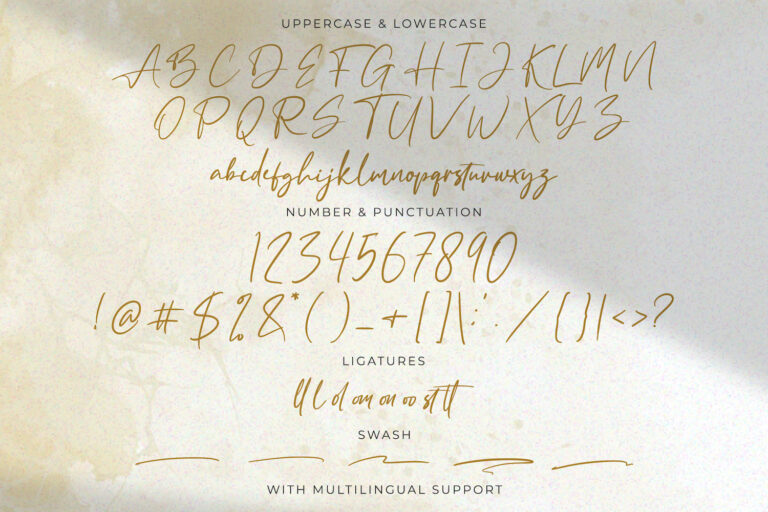 UPPERCASE & LOWERCASE
ABCDEFGHIJKLMN
OPQRSTUVWXYZ
abcdefghijklmnopqrstuvwxyz
NUMBER & PUNCTUATION
1234567890
!@#$%&*()_+[]|:./{}|<>?
LIGATURES
ll l ol om on oo st tt
SWASH
WITH MULTILINGUAL SUPPORT